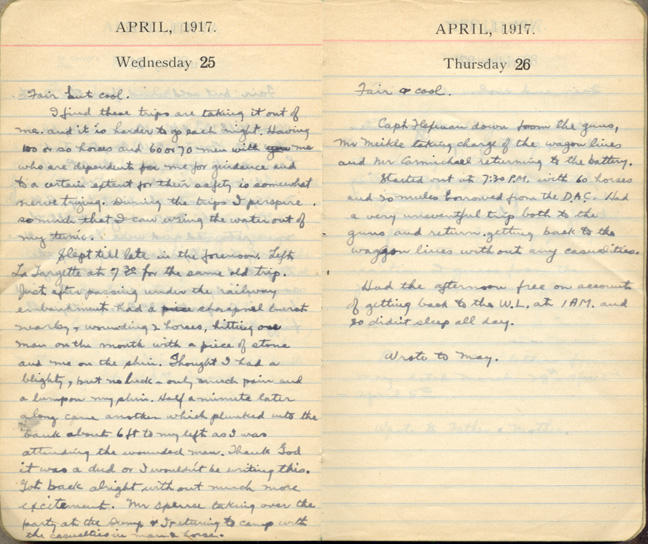 APRIL, 1917.
Wednesday 25
Fair but cool.
I find these trips are taking it out of
me. and it is harder to go each night. Having
100 or so horses and 60 or 70 men with me
who are dependent for me for guidance and
to a certain extent for their safety is somewhat
nerve trying. During the trips I perspire
so much that I can wring the water out of
my tunic.
Slept till late in the forenoon. Left
La Targette at 7 for the same old trip.
Just after passing under the railway
embankment had a piece shrapnel burst
nearby, wounding 2 horses, hitting one
man on the mouth with a piece of stone
and me on the shin. Thought I had a
blighty, but no luck - only much pain and
a lump on my shin. Half a minute later
along came another which plunked into the
bank about 6 ft to my left as I was
attending the wounded men. Thank God
it was a dud or I wouldn't be writing this.
Got back alright without much more
excitement. Mr Spence taking over the
party at the Dump & I returning to camp with
the casualties in man & horse.
APRIL, 1917.
Thursday 26
Fair & cool.
Capt down from the guns,
Mr Meikle taking charge of the wagon lines
and Mr Carmichael returning to the battery.
Started out at 7:30 P.M. with 60 horses
and 30 mules borrowed from the D.A.C. Had
a very uneventful trip both to the
guns and return. getting back to the
waggon lines without any casualties.
Had the afternoon free on account
of getting back to the W.L. at 1 AM. and
so didn't sleep all day.
Wrote to May.